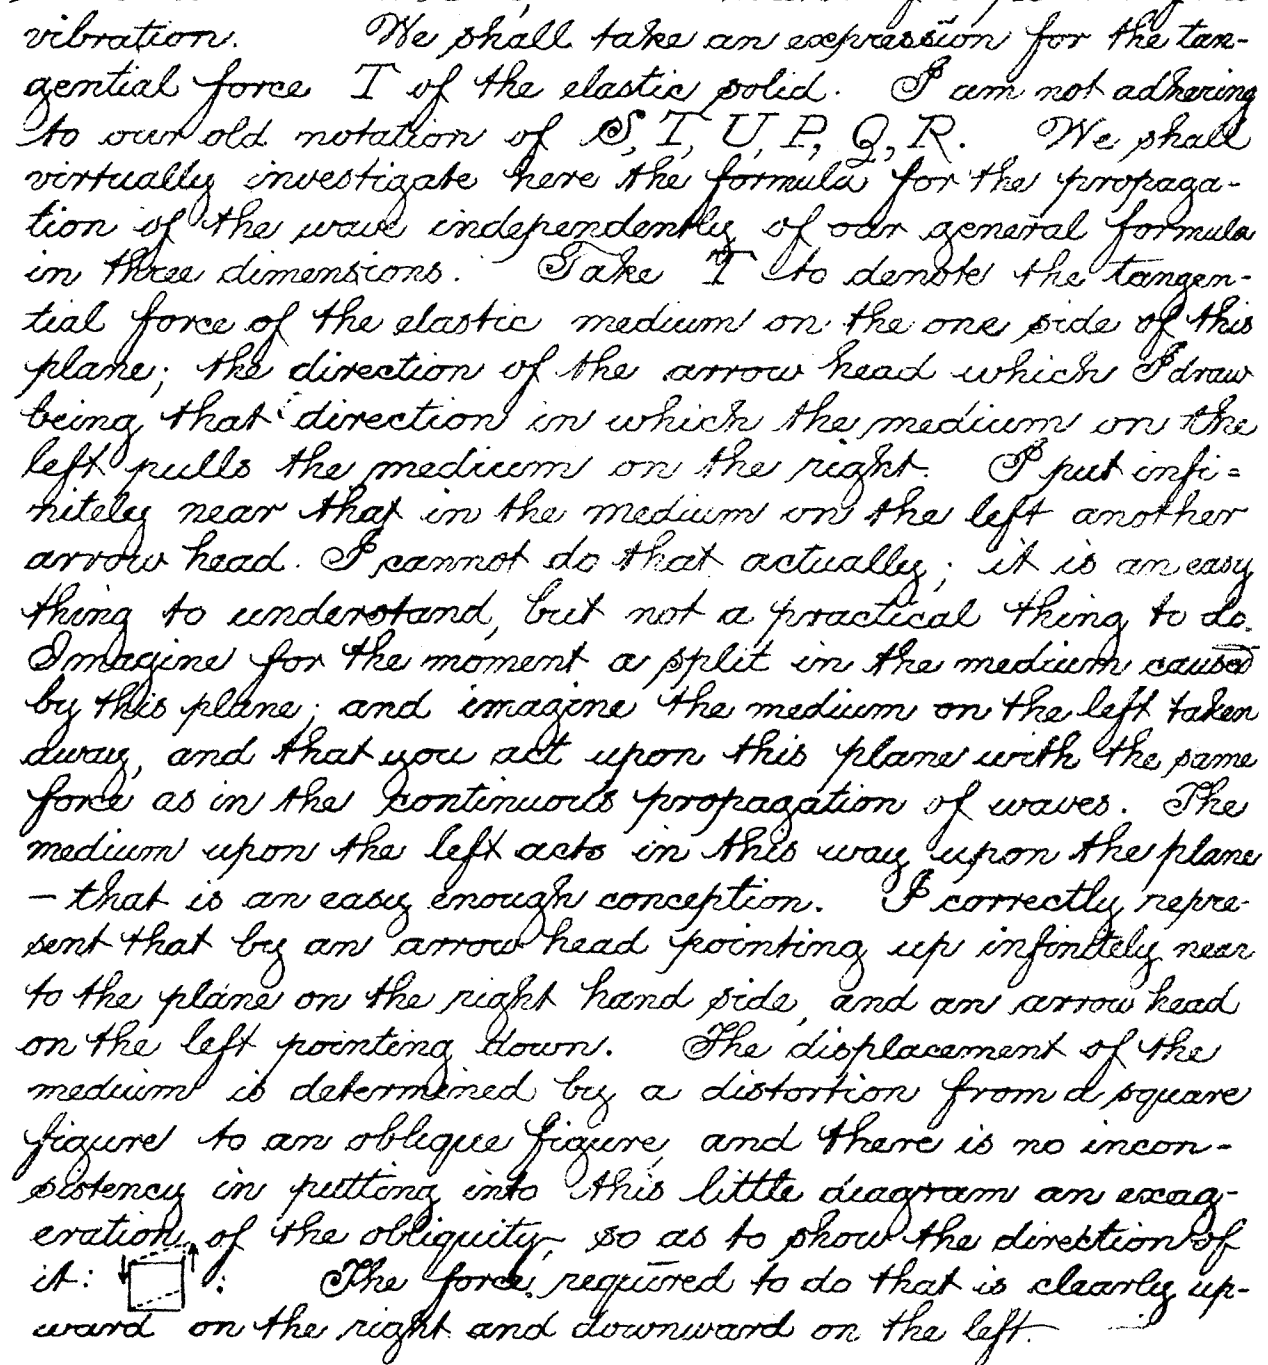 vibration. We shall take an expression for the tan-
gential force T of the elastic solid. I am not adhering
to our old notation of S, T, U, P, Q, R. We shall
virtually investigate here the formula for the propaga-
tion of the wave independently of our general formula
in three dimensions. Take T to denote the tangen-
tial force of the elastic medium on the one side of this
plane; the direction of the arrow head which I draw
being that direction in which the medium on the
left pulls the medium on the right. I put infi-
nitely near that in the medium on the left another
arrow head. I cannot do that actually; it is an easy
thing to understand, but not a practical thing to do.
Imagine for the moment a split in the medium caused
by this plane; and imagine the medium on the left taken
away, and that you act upon this plane with the same
force as in the continuous propagation of waves. The
medium upon the left acts in this way upon the plane
– that is an easy enough conception. I correctly repre-
sent that by an arrow head pointing up infinitely near
to the plane on the right hand side, and an arrow head
on the left pointing down. The displacement of the
medium is determined by a distortion from a square
figure to an oblique figure, and there is no incon-
sistency in putting into this little diagram an exag-
eration of the obliquity, so as to show the direction of
it: : The force required to do that is clearly up-
ward on the right and downward on the left.